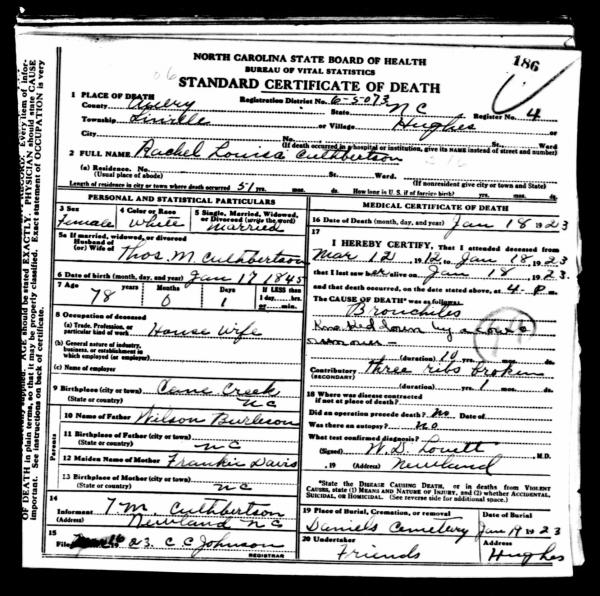 186
NORTH CAROLINA STATE BOARD OF HEALTH
BUREAU OF VITAL STATISTICS
STANDARD CERTIFICATE OF DEATH
1 PLACE OF DEATH Registration District No. 6-5073 Register No. 4
County Avery State NC
Township Linville or Village Hughes
City No. St. Ward
(If death occurred in a hospital or institution, give its NAME instead of street and number)
2 FULL NAME Rachel Louisa Cuthbertson
(a) Residence. No. St. Ward.
(Usual place of abode) (If nonresident give city or town and State)
Length of residence in city or town where death occurred 51 yrs. mos. ds. How long in U. S. if of foreign birth? yrs. mos. ds.
PERSONAL AND STATISTICAL PARTICULARS
3 Sex Female
4 Color or Race White
5 Single, Married, Widowed, or Divorced (write the word) Married
5a If married, widowed, or divorced
Husband of
(or) Wife of Thos. M Cuthbertson
6 Date of birth (month, day, and year) Jan 17 1845
7 Age 78 years 0 Months 1 Days If LESS than 1 day, hrs. or min.
8 Occupation of deceased
(a) Trade, Profession, or particular kind of work House Wife
(b) General nature of industry, business, or establishment in which employed (or employer)
(c) Name of employer
9 Birthplace (city or town) Cane Creek
(State or country) NC
Parents
10 Name of Father Wilson Burleson
11 Birthplace of Father (city or town)
(State or country) NC
12 Maiden Name of Mother Frankie Davis
13 Birthplace of Mother (city or town)
(State or country) NC
14
Informant T. M. Cuthbertson
(Address) Newland NC
15
Filed 23. C. C. Johnson
REGISTRAR
MEDICAL CERTIFICATE OF DEATH
16 Date of Death (month, day, and year) Jan 18 1923
17
I HEREBY CERTIFY, That I attended deceased from
Mar 12, 1912, Jan 18, 1923
that I last saw her alive on Jan 18, 1923
and that death occurred, on the date stated above, at 4- P m.
The CAUSE OF DEATH* was as follows:
Bronchites
Knocked down by a cow &
run over
(duration) 10 yrs. mos. ds.
Contributory Three ribs broken
(SECONDARY)
(duration) yrs. 1 mos. ds.
18 Where was disease contracted
if not at place of death?
Did an operation precede death? No Date of
Was there an autopsy? no
What test confirmed diagnosis?
(Signed) W. D. Lovett M.D.
, 19 (Address) Newland
*State the DISEASE CAUSING DEATH, or in deaths from VIOLENT
CAUSES, state (1) MEANS AND NATURE OF INJURY, and (2) whether ACCIDENTAL,
SUICIDAL, or HOMICIDAL. (See reverse side for additional space.)
19 Place of Burial, Cremation, or removal Date of Burial
Daniels Cemetery Jan 19 1923
20 Undertaker Address
Friends Hughes